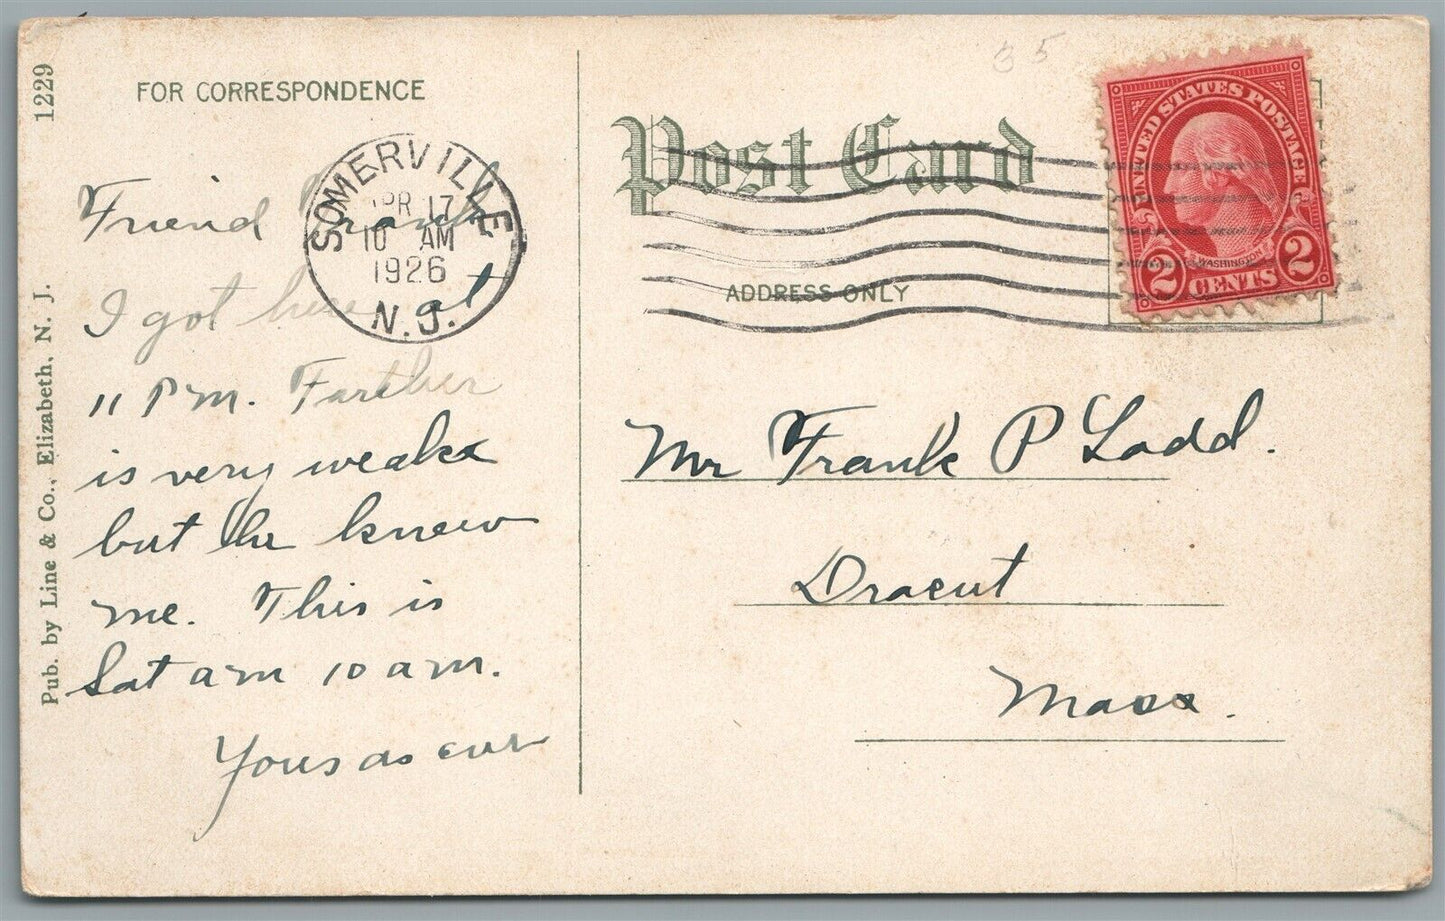 1229
Pub. by Line & Co., Elizabeth, N. J.
FOR CORRESPONDENCE
SOMERVILLE
APR 17
10 AM
1926
N.J.
Friend Frank
I got here at
11 P m. Farther
is very weak
but he knew
me. This is
Sat a m 10 a m.
Yours as ever
35
Post Card
ADDRESS ONLY
UNITED STATES POSTAGE
WASHINGTON
2 CENTS 2
Mr Frank P Ladd.
Dracut
Mass.